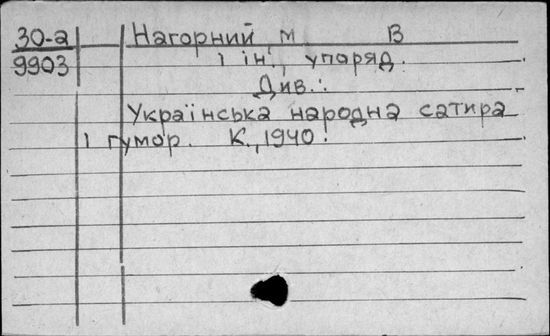 30-а Нагорний, М В
9903 і ін., упоряд.
Див.:
Українська народна сатира
і гумор. К., 1940.